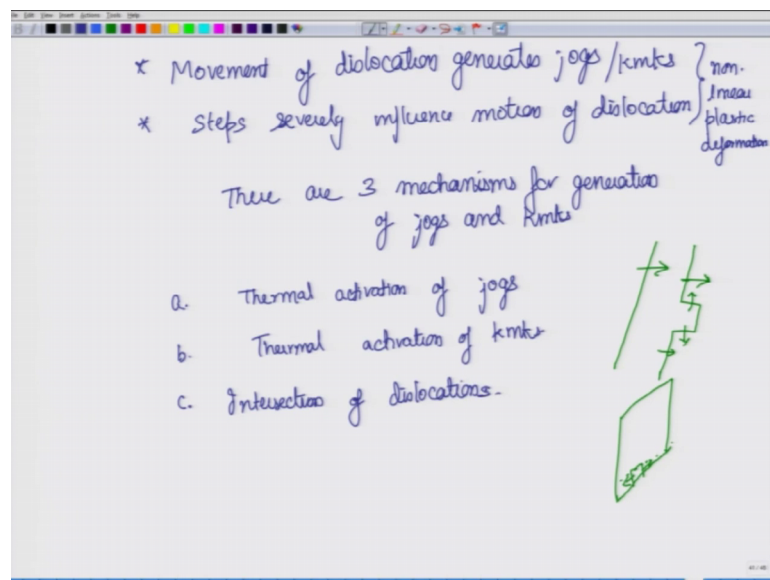 File Edit View Insert Actions Tools Help
* Movement of dislocation generates jogs/kinks
* Steps severely influence motion of dislocation
non-
linear
plastic
deformation
There are 3 mechanisms for generation
of jogs and kinks
a. Thermal activation of jogs
b. Thermal activation of kinks
c. Intersection of dislocations.